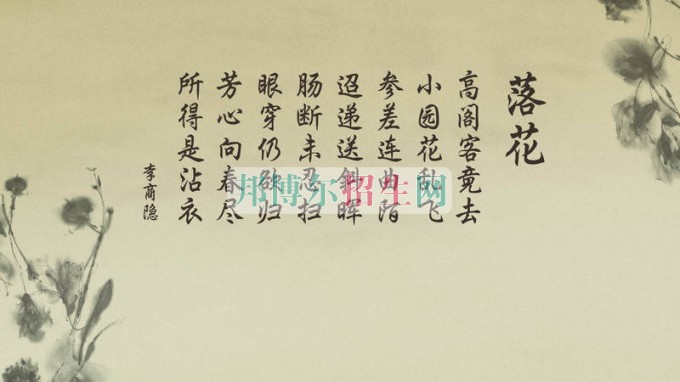 落花
高阁客竟去
小园花乱飞
参差连曲陌
迢递送斜晖
肠断未忍扫
眼穿仍欲归
芳心向春尽
所得是沾衣
李商隐
邦博尔招生网